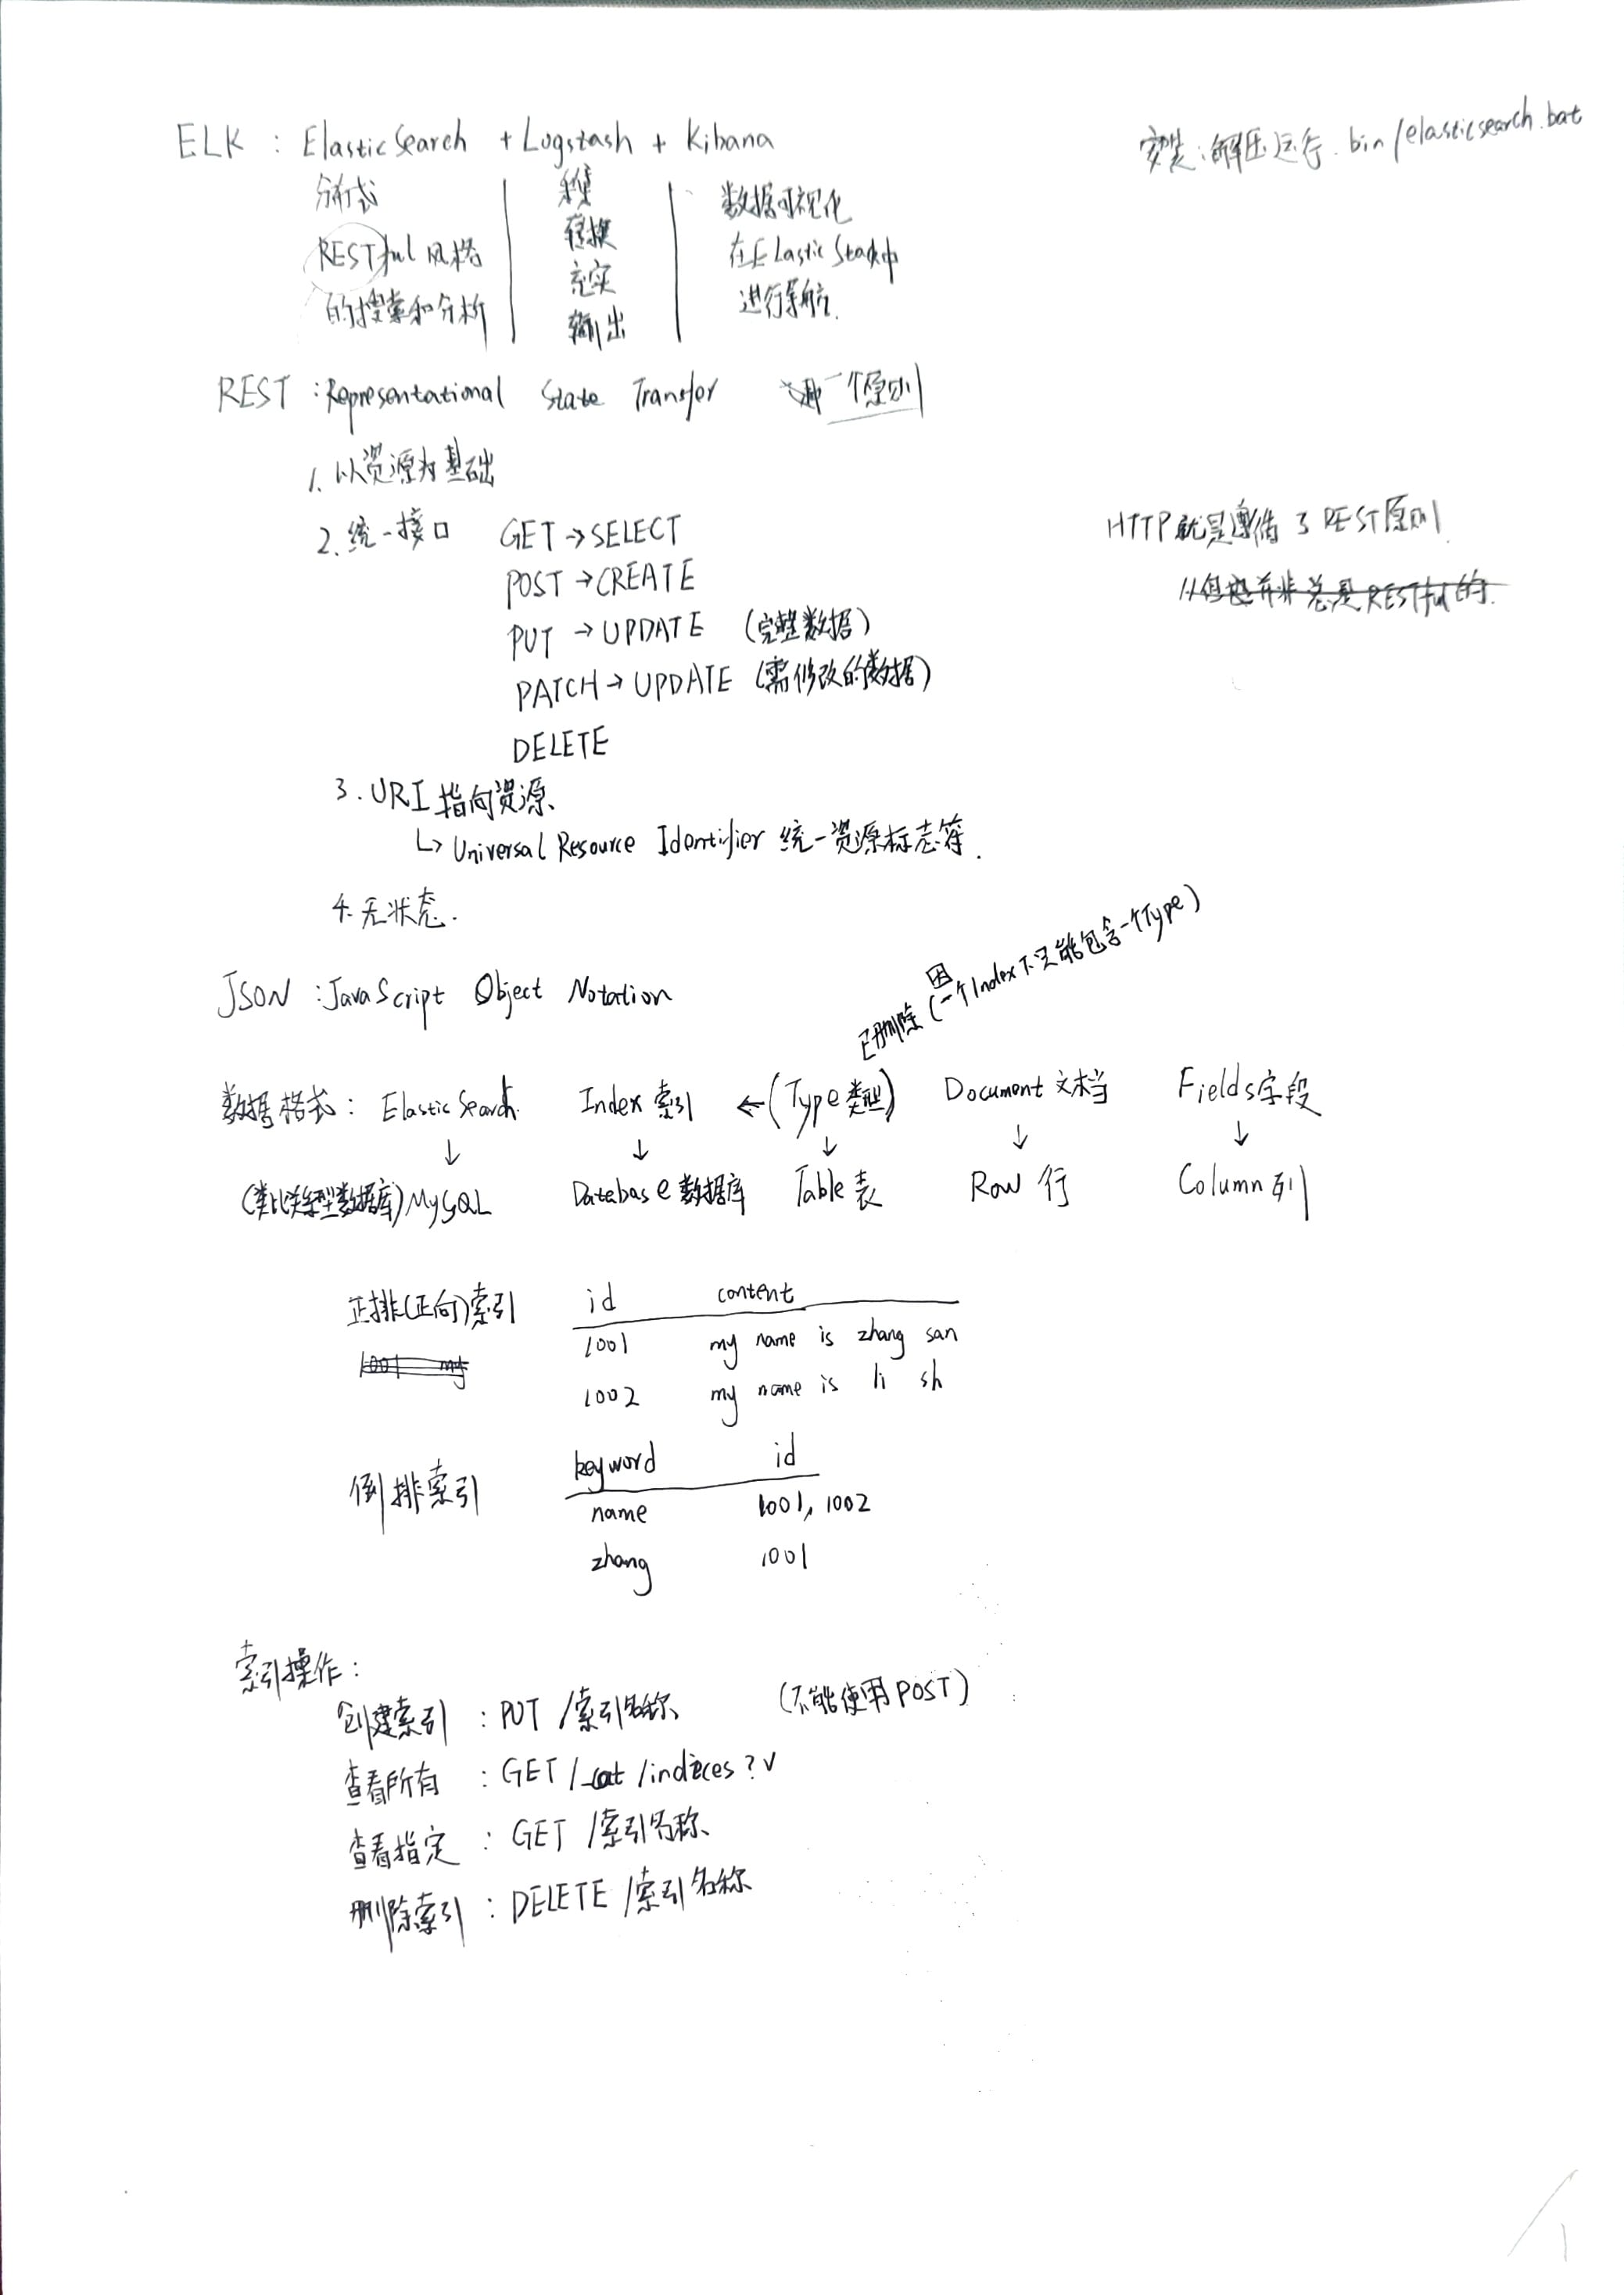 ELK : ElasticSearch + Logstash + Kibana
安装:解压运行. bin/elasticsearch.bat
分布式
RESTful 风格
的搜索和分析
采集
转换
充实
输出
数据可视化
在Elastic Stack中
进行导航.
REST : Representational State Transfer 一个原则
1. 以资源为基础
2. 统一接口 GET → SELECT
POST → CREATE
PUT → UPDATE (完整数据)
PATCH → UPDATE (需修改的数据)
DELETE
HTTP就是遵循了REST原则.
但也并非总是RESTful的.
3. URI 指向资源、
↳ Universal Resource Identifier 统一资源标志符.
4. 无状态.
JSON : JavaScript Object Notation
已删除 (因一个Index下只能包含一个Type)
数据格式: ElasticSearch Index 索引 ← (Type 类型) Document 文档 Fields字段
↓ ↓ ↓ ↓ ↓
(类比关系型数据库) MySQL Database 数据库 Table 表 Row 行 Column 列
正排(正向)索引 id content
1001 my
1001 my name is zhang san
1002 my name is li sh
倒排索引 keyword id
name 1001, 1002
zhang 1001
索引操作:
创建索引 : PUT /索引名称 (不能使用POST)
查看所有 : GET /_cat/indices?v
查看指定 : GET /索引名称
删除索引 : DELETE /索引名称
1